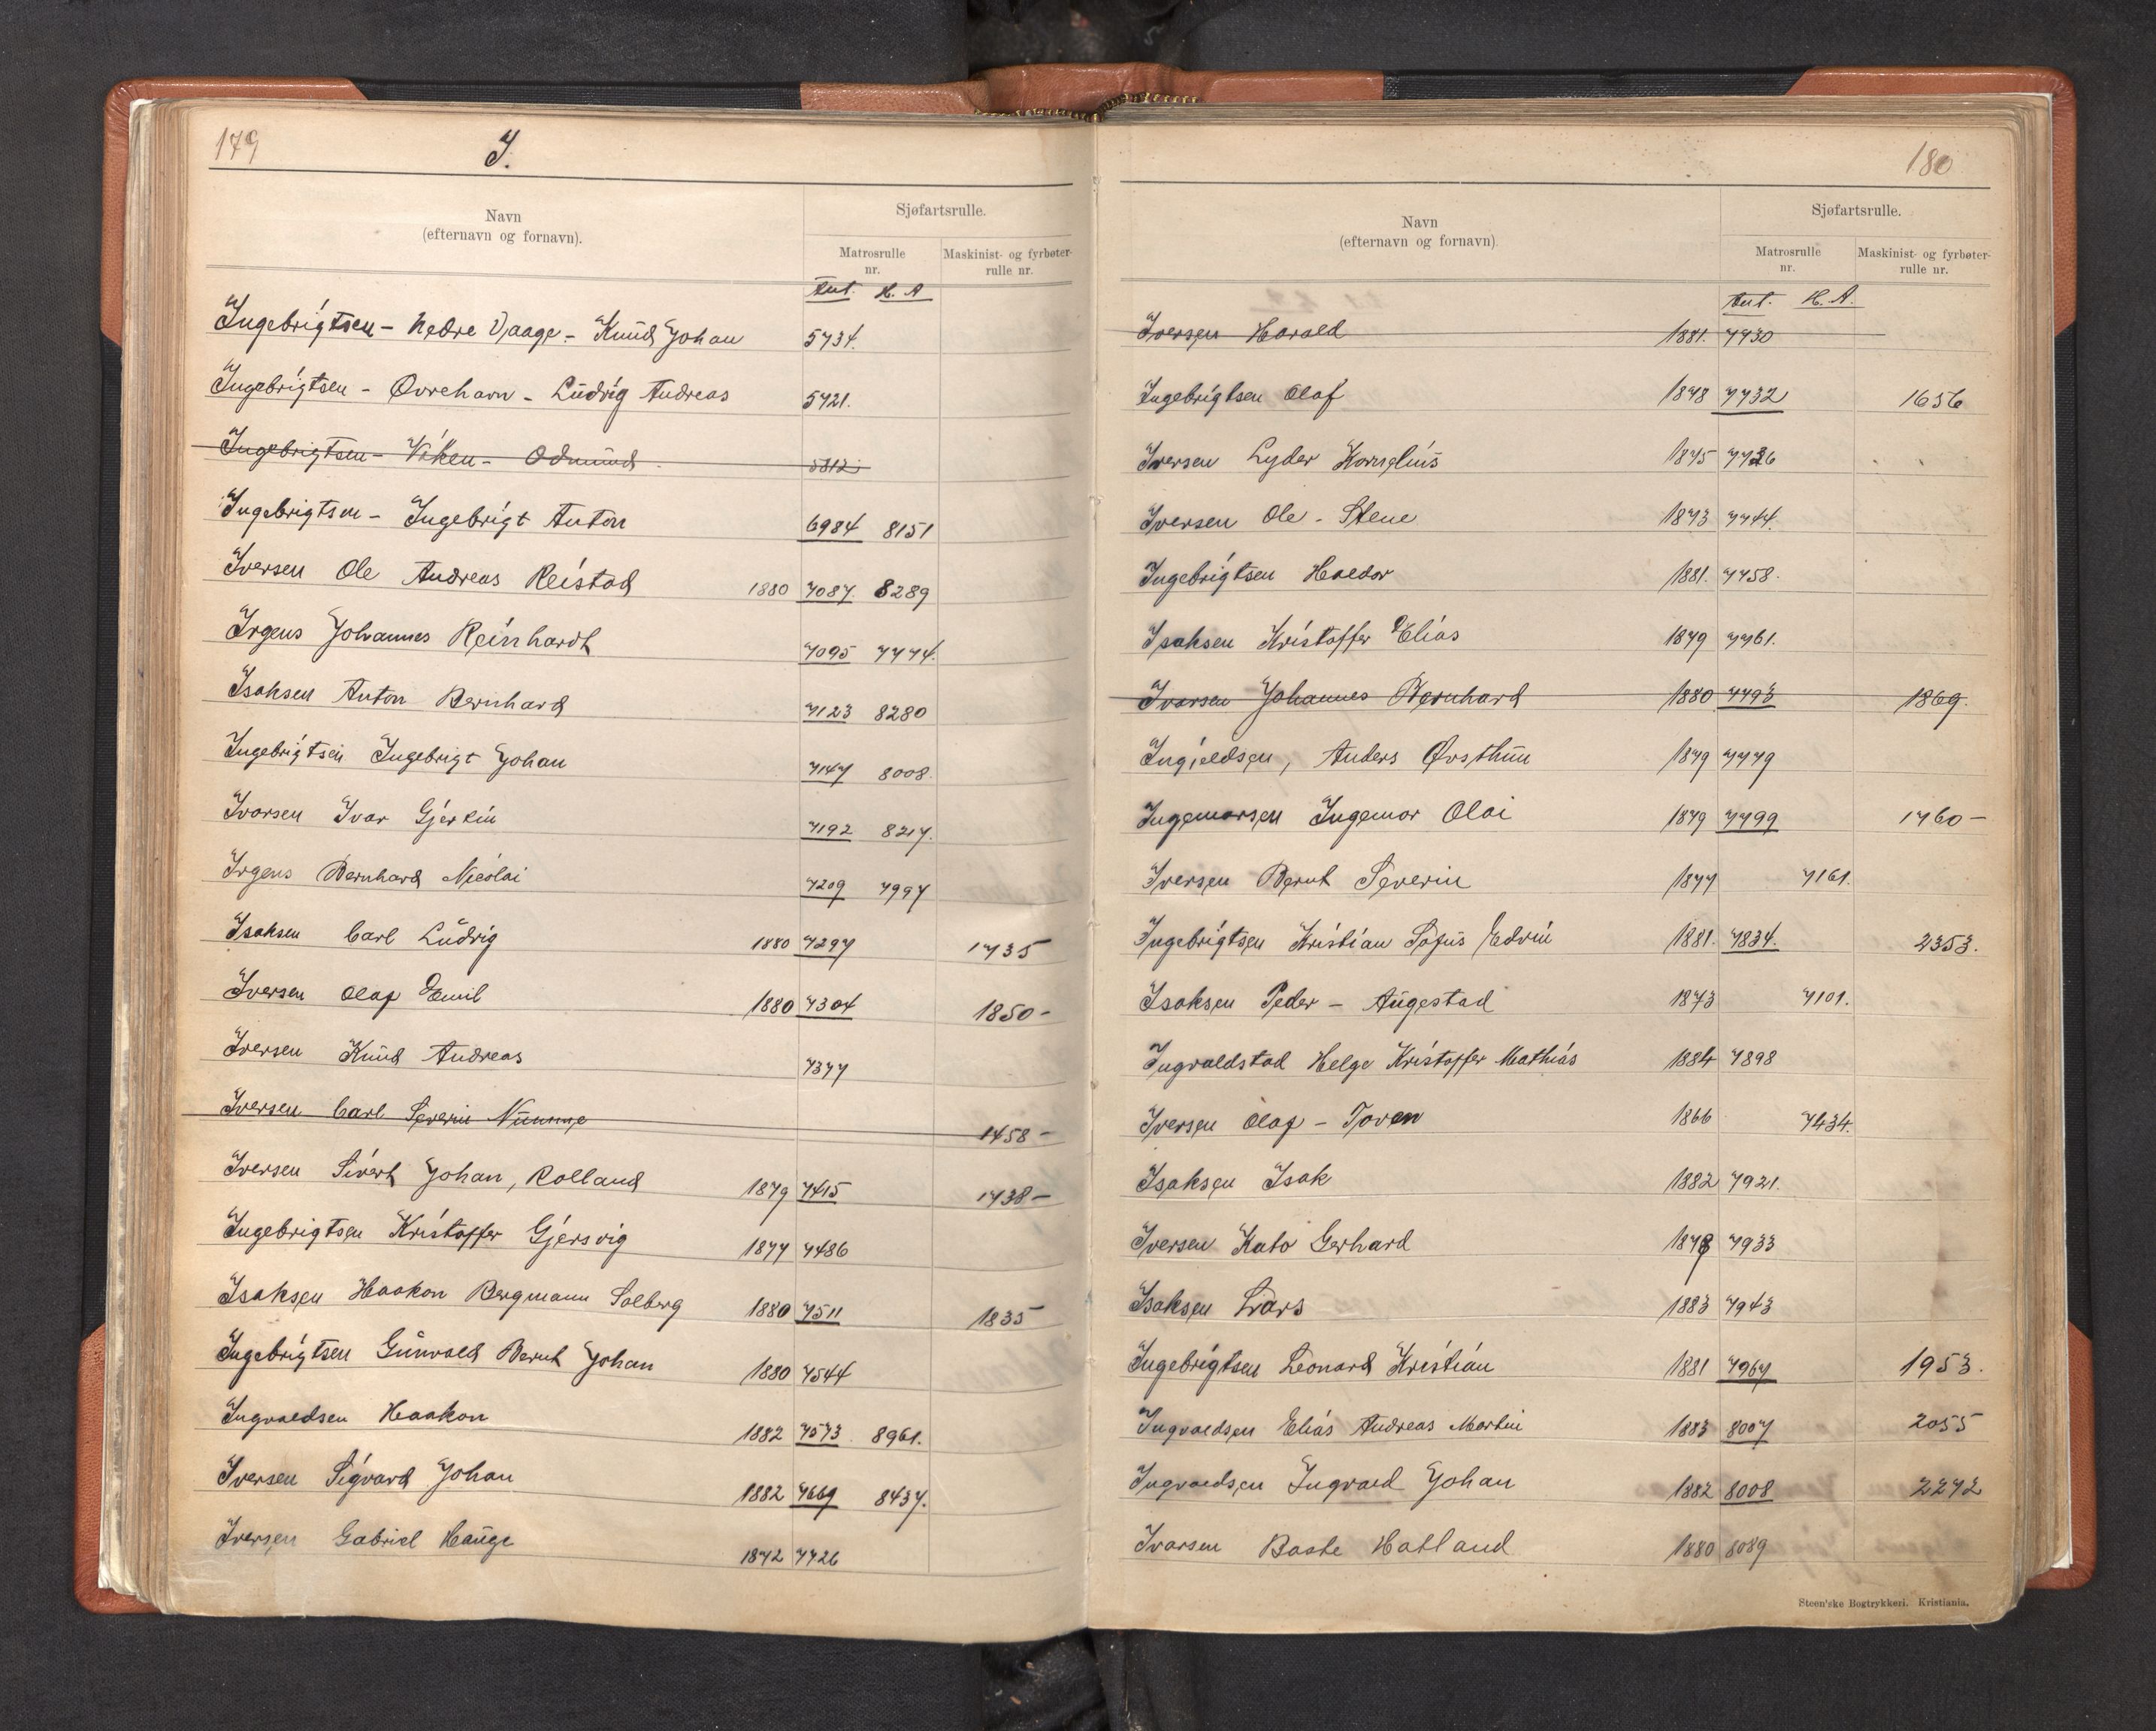 179
I.
Navn
(efternavn og fornavn).
Sjøfartsrulle.
Matrosrulle
nr.
Maskinist- og fyrbøter-
rulle nr.
Ant. H. A
Ingebrigtsen - Nedre Vaage - Knud Johan 5734.
Ingebrigtsen - Ovrehavn - Ludvig Andreas 5721.
Ingebrigtsen - Viken - Odmund 5812
Ingebrigtsen - Ingebrigt Anton 6984 8151
Iversen Ole Andreas Reistad 1880 7087. 8289
Irgens Johannes Reinhardt 7095 7774.
Isaksen Anton Bernhard 7123 8280
Ingebrigtsen Ingebrigt Johan 7147 8008.
Ivarsen Ivar Gjerlin 7192 8217.
Irgens Bernhard Nicolai 7209 7997
Isaksen Carl Ludvig 1880 7297 1735
Iversen Olaf Emil 1880 7304 1850-
Iversen Knud Andreas 7377
Iversen Carl Severin 1458-
Iversen Sivert Johan, Rolland 1879 7415 1738-
Ingebrigtsen Kristoffer Gjersvig 1877 7486
Isaksen Haakon Bergmann Solberg 1880 7511 1835
Ingebrigtsen Gunvald Bernt Johan 1880 7544
Ingvaldsen Haakon 1882 7573. 8961.
Iversen Sigvard Johan 1882 7669 8437.
Iversen Gabriel Hauge 1872 7726
180
Navn
(efternavn og fornavn)
Sjøfartsrulle.
Matrosrulle
nr.
Maskinist- og fyrbøter-
rulle nr.
Ant. H. A.
Iversen Harald 1881. 7730
Ingebrigtsen Olaf 1878 7732 1656
Iversen Lyder Kornelius 1875 7736
Iversen Ole - Stene 1873 7744.
Ingebrigtsen Haldor 1881. 7758.
Isaksen Kristoffer Elias 1879 7761.
Ivarsen Johannes Bernhard 1880 7793 1869.
Ingieldsen, Anders Øvsthun 1879 7779
Ingemarsen Ingemar Olai 1879 7799 1760-
Iversen Bernt Severin 1877 7161.
Ingebrigtsen Kristian Sofus Edvin 1881. 7834. 2353.
Isaksen Peder - Augestad 1873 7101.
Ingvaldstad Helge Kristoffer Mathias 1884 7898
Iversen Olaf - Toven 1866 7434.
Isaksen Isak 1882 7921.
Iversen Kato Gerhard 1878 7933
Isaksen Lars 1883 7943
Ingebrigtsen Leonard Kristian 1881 7967 1953.
Ingvaldsen Elias Andreas Martin 1883 8007 2055
Ingvaldsen Ingvald Johan 1882 8008 2272
Ivarsen Baste Hatland 1880 8089
Steen'ske Bogtrykkeri. Kristiania.